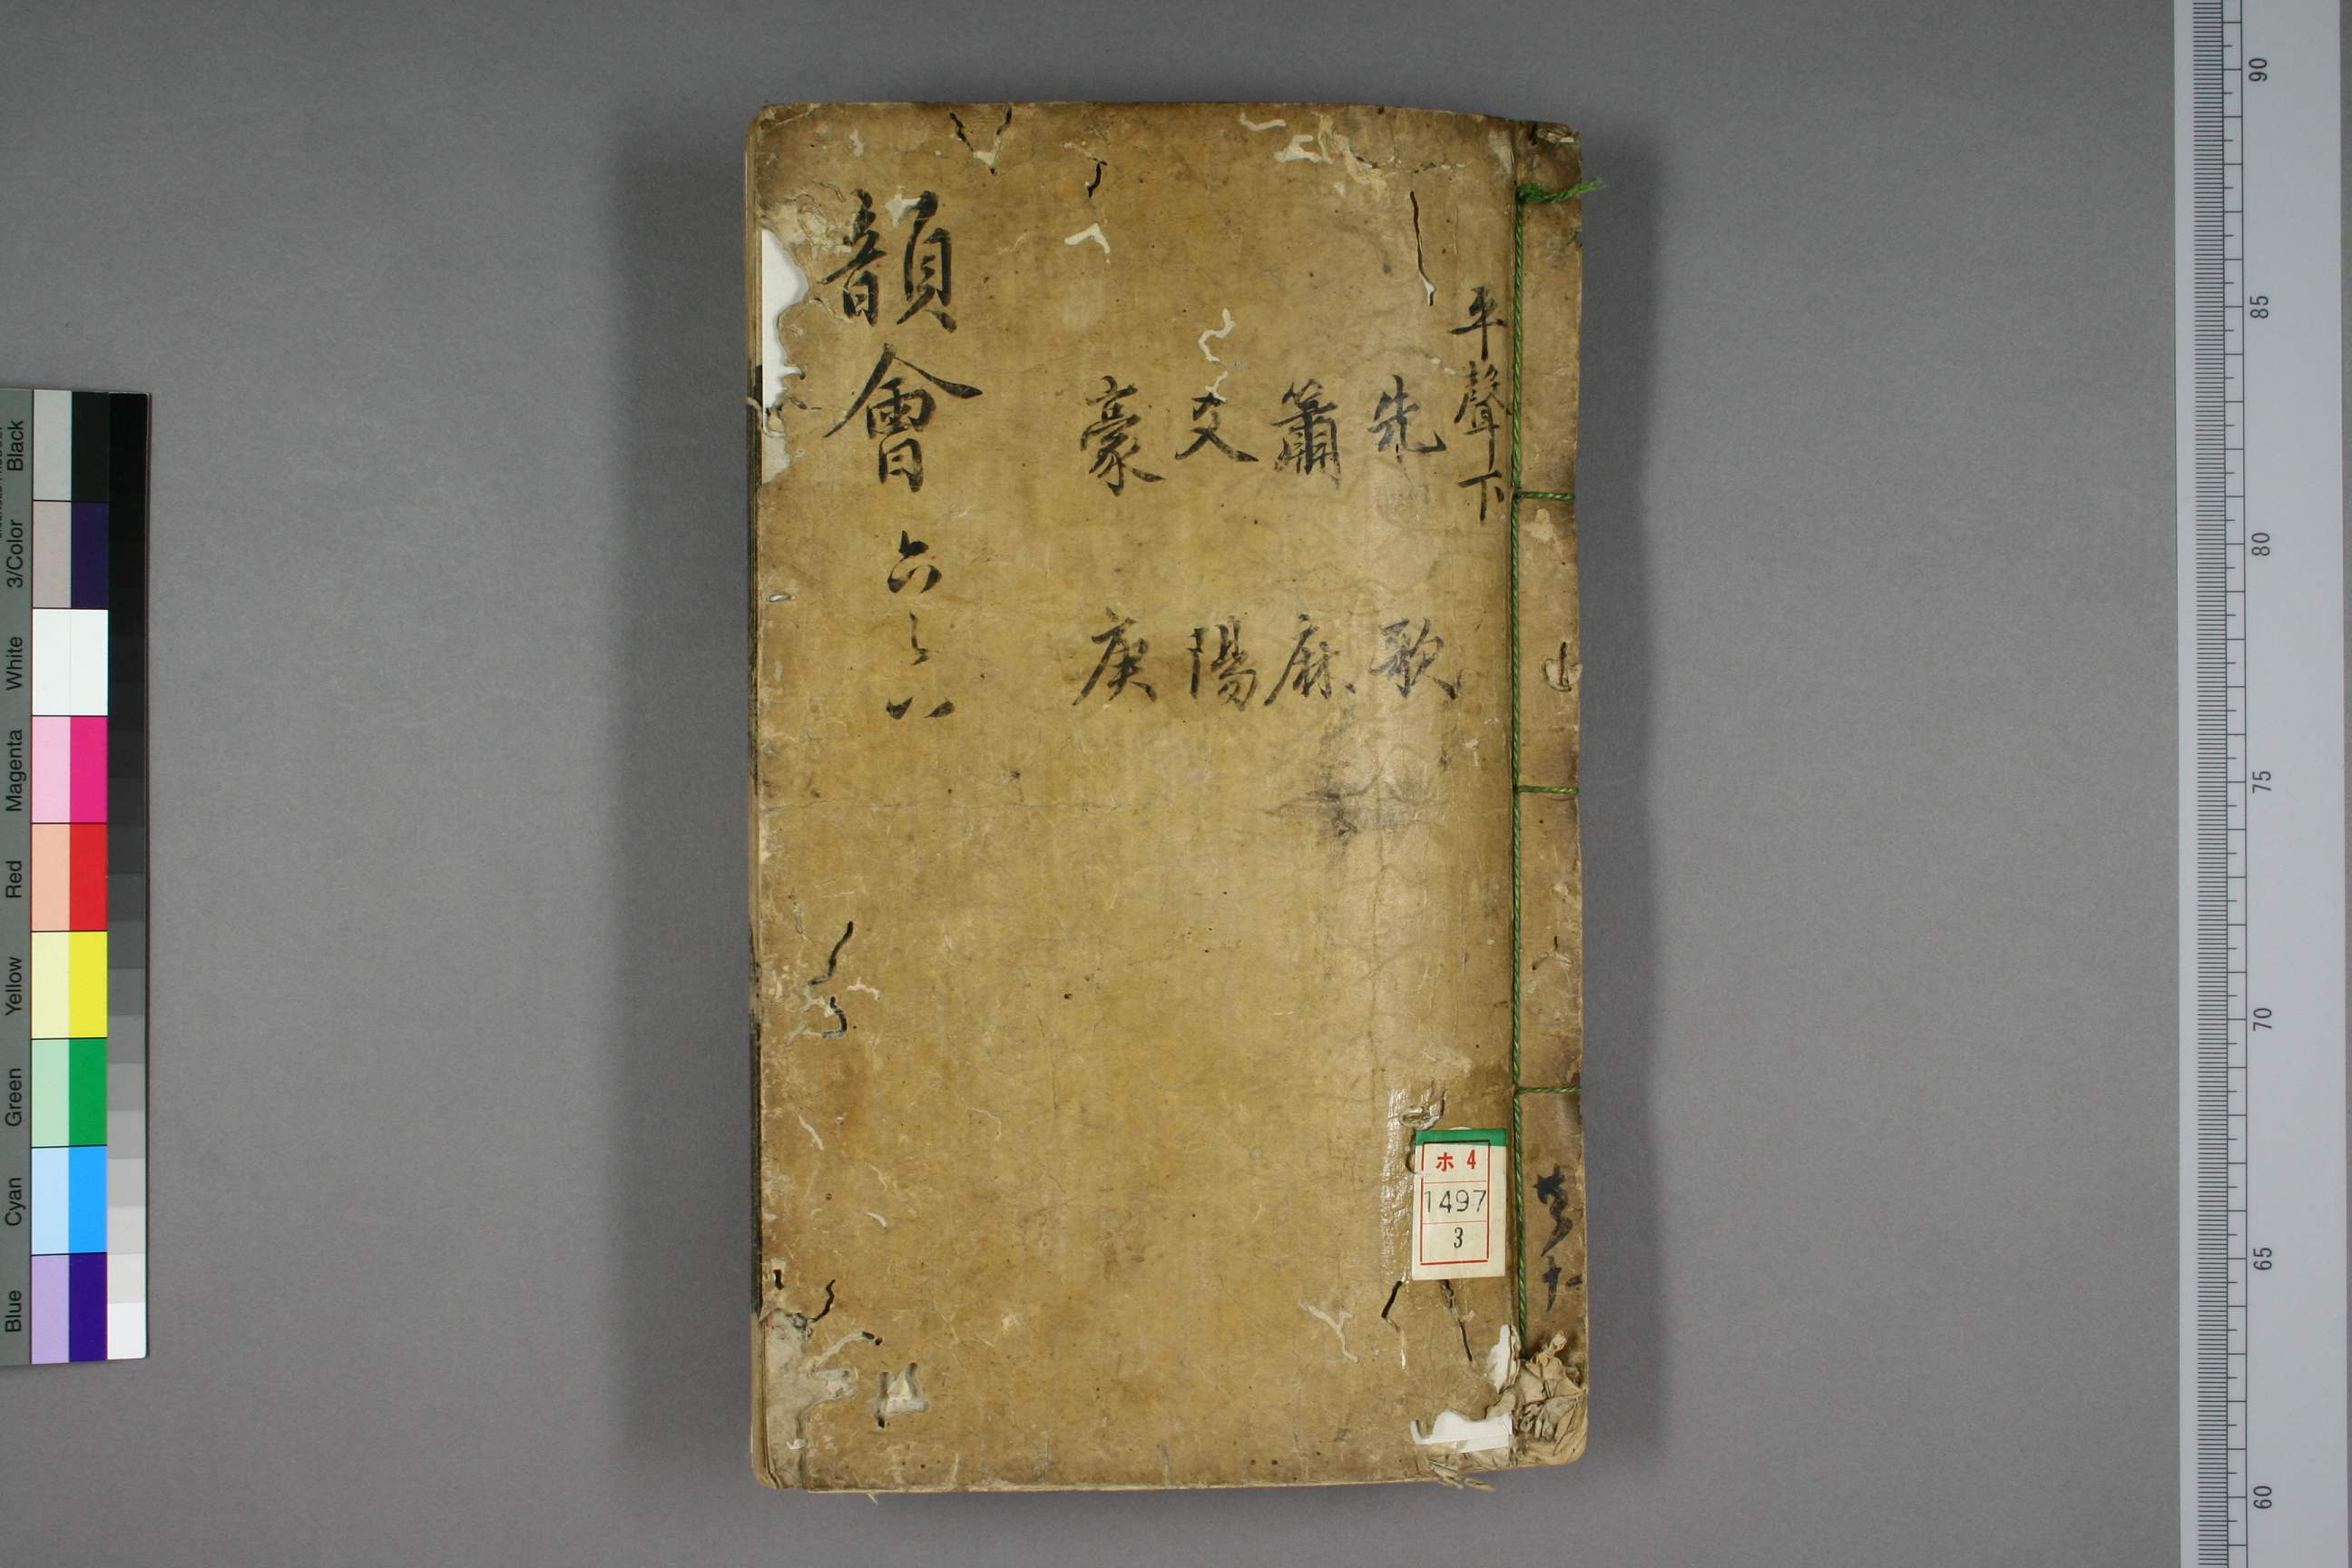 平聲下
先 歌
簫 麻
爻 陽
豪 庚
韻會 六之八
ホ 4
1497
3
Black
3/Color
White
Magenta
Red
Yellow
Green
Cyan
Blue
90
85
80
75
70
65
60